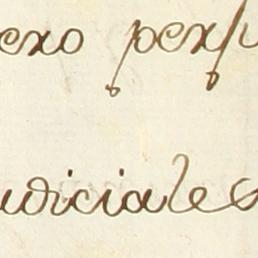 exo perp
udiciales